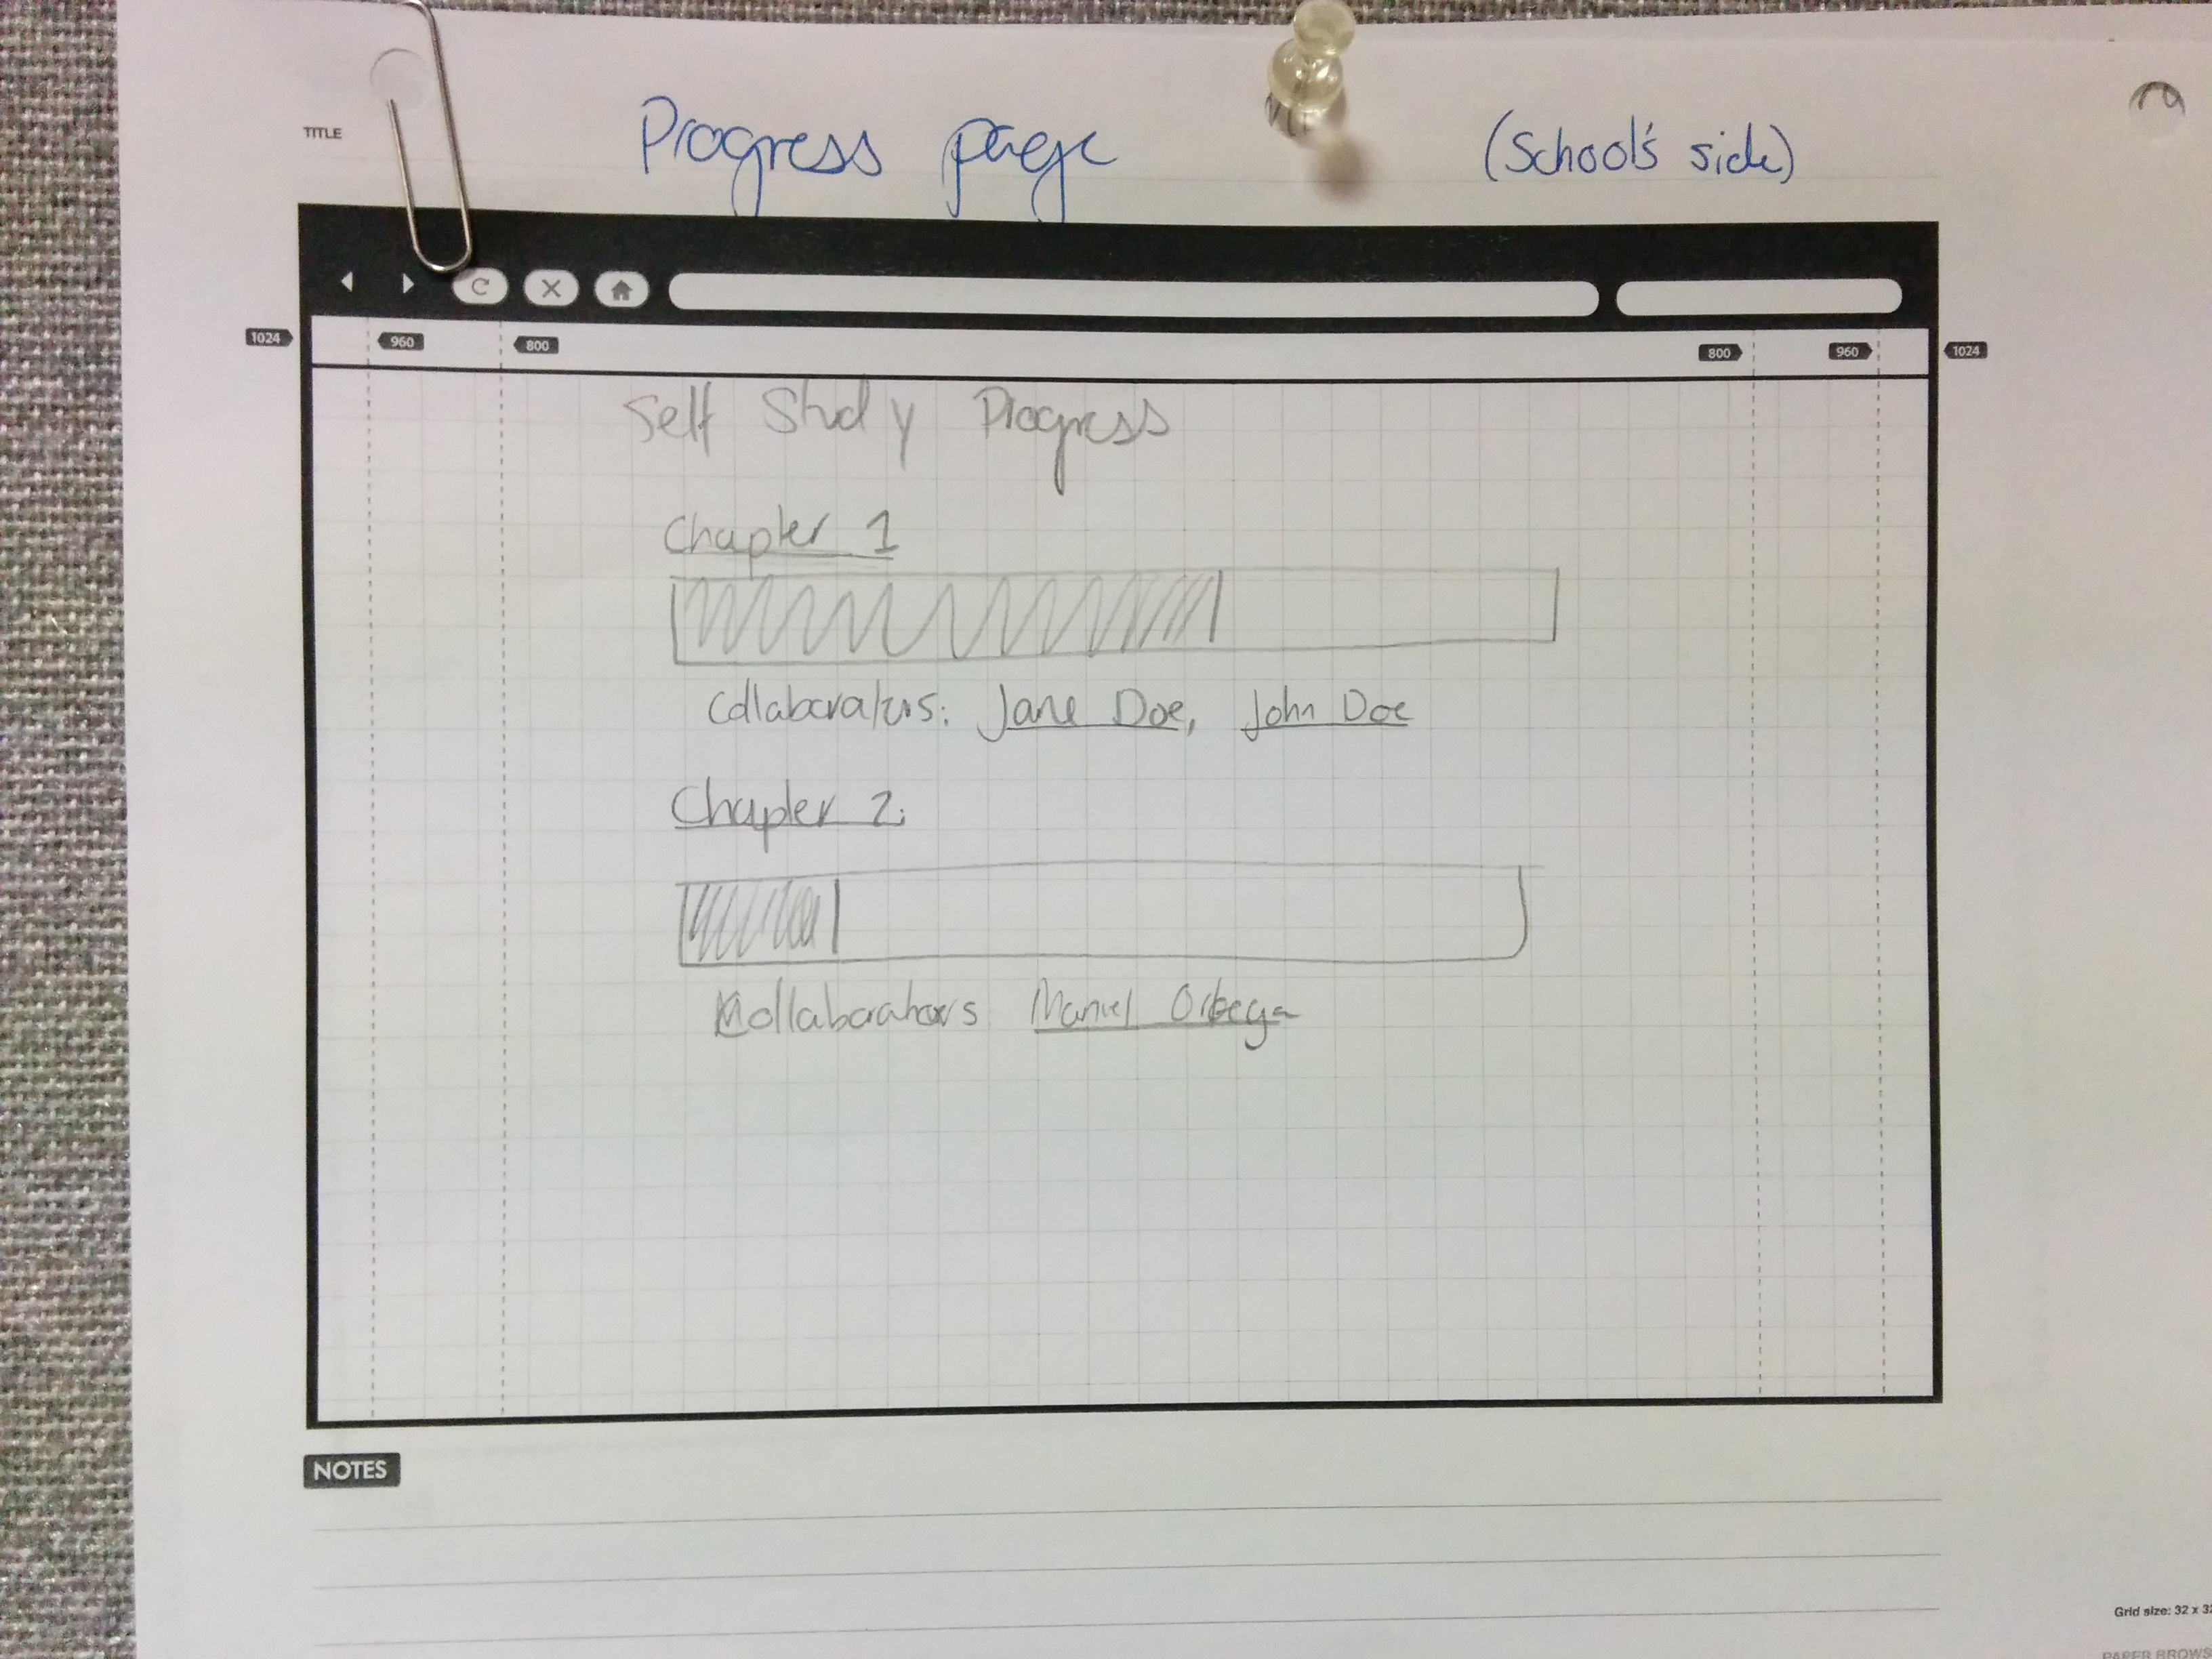 TITLE Progress page (School's side)
1024 960 800 800 960 1024
Self Study Progress
Chapter 1
Collaborators: Jane Doe, John Doe
Chapter 2:
Collaborators Manuel
NOTES
Grid size: 32 x 32
PAPER BROWS